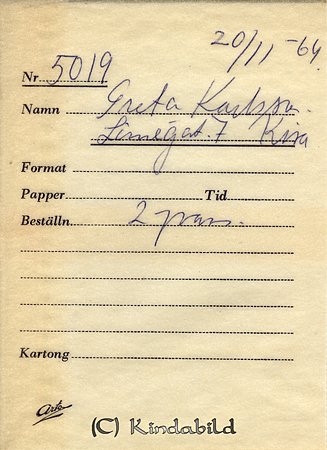 20/11 -64
Nr 5019
Namn Greta Karlsson
Linnégat. 7 Kisa
Format
Papper Tid
Beställn. 2 prov.
Kartong
Arko
(C) Kindabild